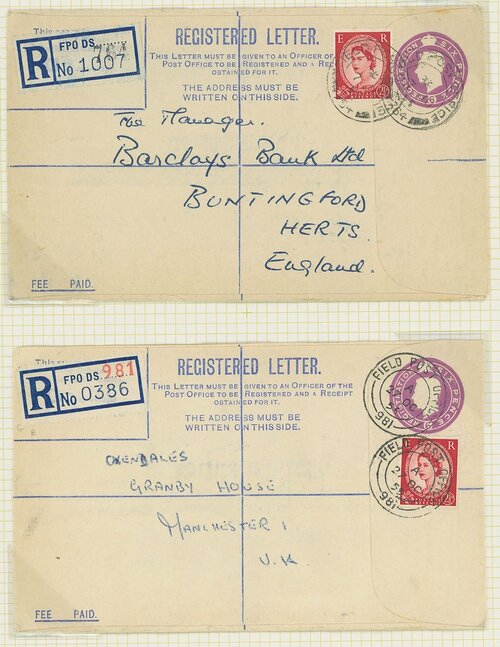 FPO DS.
R
No 1007
REGISTERED LETTER.
THIS LETTER MUST BE GIVEN TO AN OFFICER OF
POST OFFICE TO BE REGISTERED AND A
OBTAINED FOR IT.
THE ADDRESS MUST BE
WRITTEN ON THIS SIDE.
E R
SIX PENCE
The Manager.
Barclays Bank Ltd
BUNTINGFORD
HERTS.
England.
FEE PAID.
FPO DS. 981
R
No 0386
REGISTERED LETTER.
THIS LETTER MUST BE GIVEN TO AN OFFICER OF THE
POST OFFICE TO BE REGISTERED AND A RECEIPT
OBTAINED FOR IT.
THE ADDRESS MUST BE
WRITTEN ON THIS SIDE.
FIELD POST OFFICE
981
SIX PENCE
E R
FIELD POST OFFICE
981
OXENDALES
GRANBY HOUSE
MANCHESTER 1
U.K.
FEE PAID.